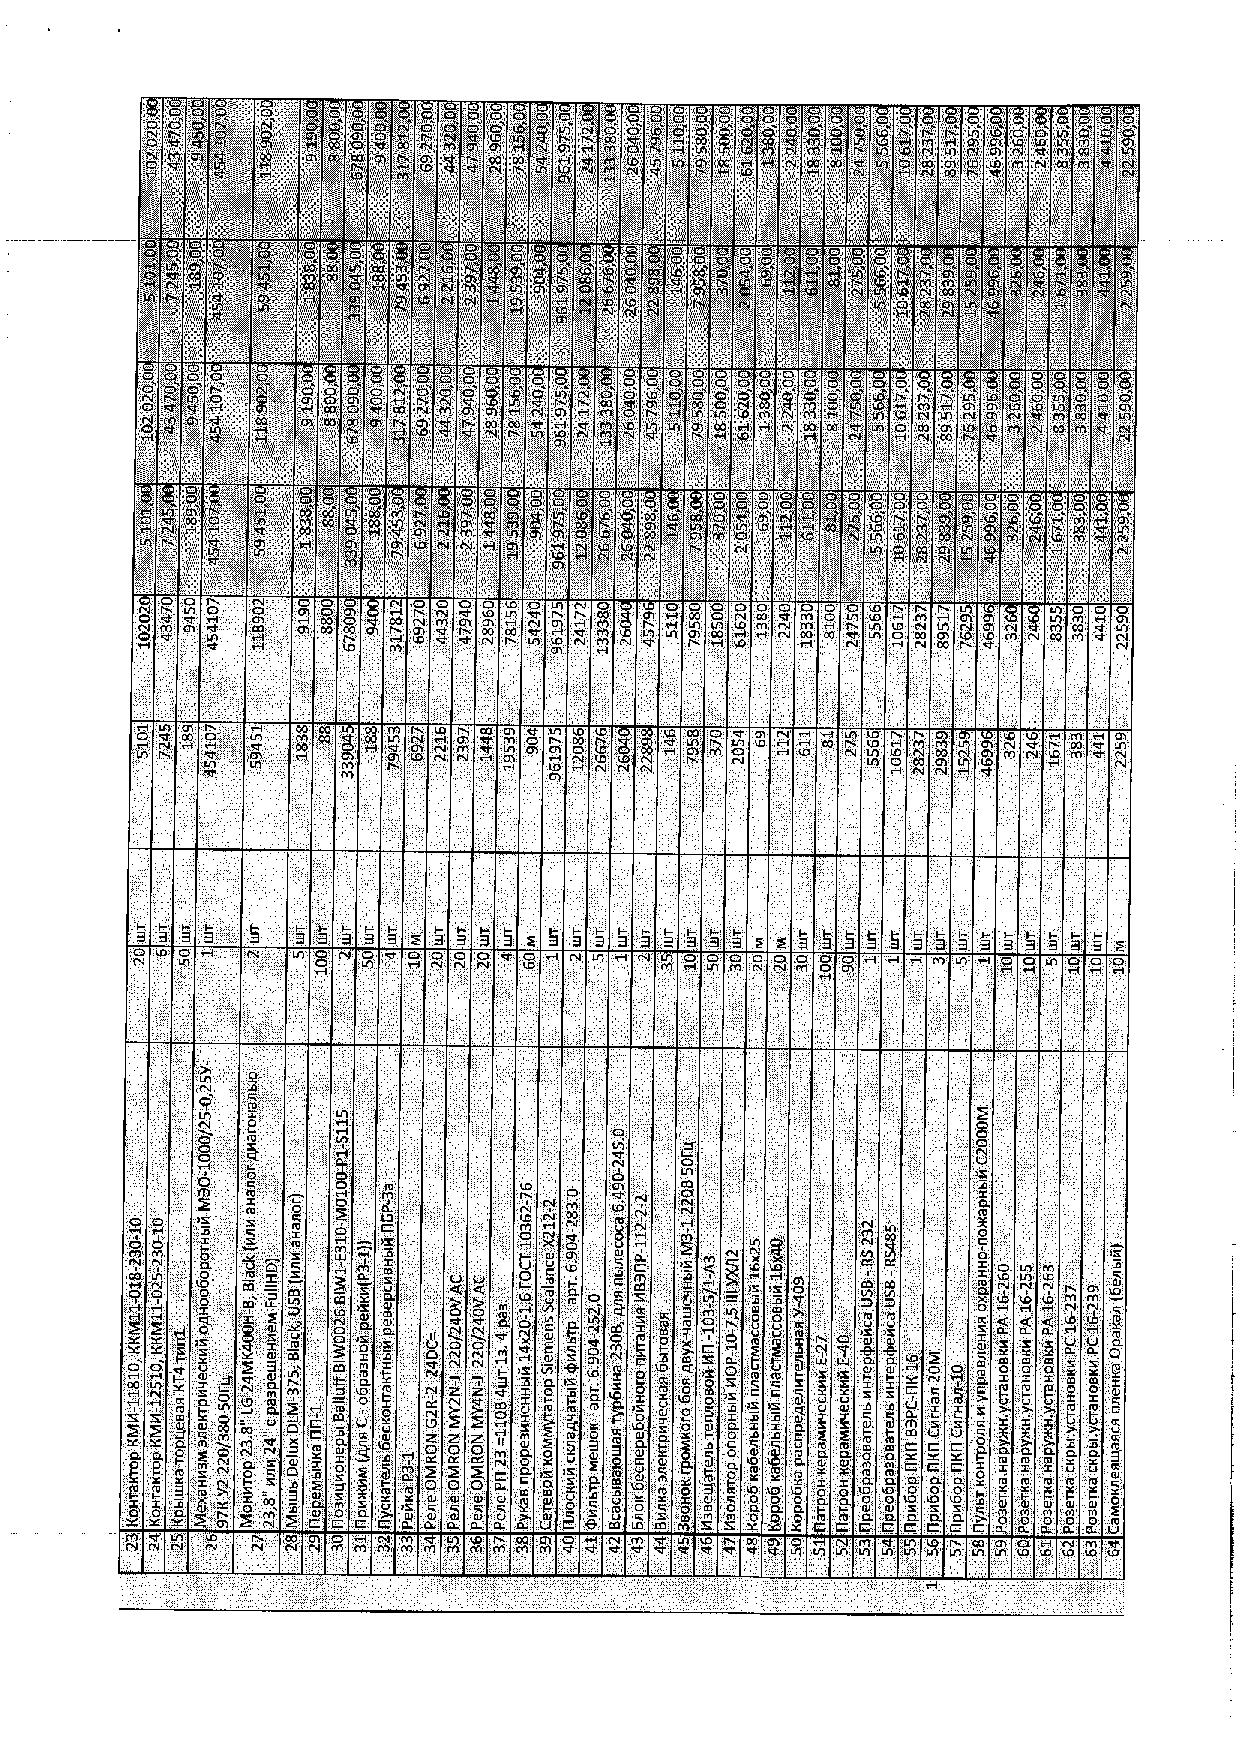 23 Контактор КМИ-11810, ККМ11-018-230-10 20 шт 5101 102020 5 101,00 102 020,00 5 101,00 102 020,00
24 Контактор КМИ-12510, ККМ11-025-230-10 6 шт 7245 43470 7 245,00 43 470,00 7 245,00 43 470,00
25 Крышка торцевая КТ4 тип1 50 шт 189 9450 189,00 9 450,00 189,00 9 450,00
26 Механизм электрический однооборотный МЭО-1000/25-0,25У-
97К У2 220/380-50Гц. 1 шт 454107 454107 454 107,00 454 107,00 454 107,00 454 107,00
27 Монитор 23.8" LG 24MK400H-B, Black (или аналог диагональю
23,8" или 24" с разрешением FullHD) 2 шт 59451 118902 59 451,00 118 902,00 59 451,00 118 902,00
28 Мышь Delux DLM-375, Black, USB (или аналог) 5 шт 1838 9190 1 838,00 9 190,00 1 838,00 9 190,00
29 Перемычка ПГ-1 100 шт 88 8800 88,00 8 800,00 88,00 8 800,00
30 Позиционеры Balluff BIW0026 BIW1-E310-M0100-P1-S115 2 шт 339045 678090 339 045,00 678 090,00 339 045,00 678 090,00
31 Прижим (для С - образной рейки(РЗ-1)) 50 шт 188 9400 188,00 9 400,00 188,00 9 400,00
32 Пускатель бесконтактный реверсивный ПБР-3а 4 шт 79453 317812 79 453,00 317 812,00 79 453,00 317 812,00
33 Рейка РЗ-1 10 м 6927 69270 6 927,00 69 270,00 6 927,00 69 270,00
34 Реле OMRON G2R-2 24DC= 20 шт 2216 44320 2 216,00 44 320,00 2 216,00 44 320,00
35 Реле OMRON MY2N-J 220/240V AC 20 шт 2397 47940 2 397,00 47 940,00 2 397,00 47 940,00
36 Реле OMRON MY4N-J 220/240V AC 20 шт 1448 28960 1 448,00 28 960,00 1 448,00 28 960,00
37 Реле РП 23 =110В 4шт-1з. 4 раз 4 шт 19539 78156 19 539,00 78 156,00 19 539,00 78 156,00
38 Рукав прорезиненный 14х20-1,6 ГОСТ 10362-76 60 м 904 54240 904,00 54 240,00 904,00 54 240,00
39 Сетевой коммутатор Siemens Scallance X212-2 1 шт 961975 961975 961 975,00 961 975,00 961 975,00 961 975,00
40 Плоский складчатый фильтр арт. 6.904-283.0 2 шт 12086 24172 12 086,00 24 172,00 12 086,00 24 172,00
41 Фильтр-мешок арт. 6.904-252.0 5 шт 26676 133380 26 676,00 133 380,00 26 676,00 133 380,00
42 Всасывающая турбина 230В, для пылесоса 6.490-245.0 1 шт 26040 26040 26 040,00 26 040,00 26 040,00 26 040,00
43 Блок бесперебойного питания ИВЭПР 112-2-2 2 шт 22898 45796 22 898,00 45 796,00 22 898,00 45 796,00
44 Вилка электрическая бытовая 35 шт 146 5110 146,00 5 110,00 146,00 5 110,00
45 Звонок громкого боя двух-чашечный МЗ-1 220В 50Гц 10 шт 7958 79580 7 958,00 79 580,00 7 958,00 79 580,00
46 Извещатель тепловой ИП -103-5/1-А3 50 шт 370 18500 370,00 18 500,00 370,00 18 500,00
47 Изолятор опорный ИОР-10-7,5 III УХЛ2 30 шт 2054 61620 2 054,00 61 620,00 2 054,00 61 620,00
48 Короб кабельный пластмассовый 16х25 20 м 69 1380 69,00 1 380,00 69,00 1 380,00
49 Короб кабельный пластмассовый 16х40 20 м 112 2240 112,00 2 240,00 112,00 2 240,00
50 Коробка распределительная У-409 30 шт 611 18330 611,00 18 330,00 611,00 18 330,00
51 Патрон керамический Е-27 100 шт 81 8100 81,00 8 100,00 81,00 8 100,00
52 Патрон керамический Е-40 90 шт 275 24750 275,00 24 750,00 275,00 24 750,00
53 Преобразователь интерфейса USB - RS 232 1 шт 5566 5566 5 566,00 5 566,00 5 566,00 5 566,00
54 Преобразователь интерфейса USB - RS485 1 шт 10617 10617 10 617,00 10 617,00 10 617,00 10 617,00
55 Прибор ПКП ВЭРС-ПК 16 1 шт 28237 28237 28 237,00 28 237,00 28 237,00 28 237,00
1 56 Прибор ПКП Сигнал 20М 3 шт 29839 89517 29 839,00 89 517,00 29 839,00 89 517,00
57 Прибор ПКП Сигнал-10 5 шт 15259 76295 15 259,00 76 295,00 15 259,00 76 295,00
58 Пульт контроля и управления охранно-пожарный С2000М 1 шт 46996 46996 46 996,00 46 996,00 46 996,00 46 996,00
59 Розетка наружн.установки РА 16-260 10 шт 326 3260 326,00 3 260,00 326,00 3 260,00
60 Розетка наружн.установки РА 16-255 10 шт 246 2460 246,00 2 460,00 246,00 2 460,00
61 Розетка наружн.установки РА 16-263 5 шт 1671 8355 1 671,00 8 355,00 1 671,00 8 355,00
62 Розетка скрыт.установки РС 16-237 10 шт 383 3830 383,00 3 830,00 383,00 3 830,00
63 Розетка скрыт.установки РС 16-239 10 шт 441 4410 441,00 4 410,00 441,00 4 410,00
64 Самоклеящаяся пленка Оракал (белый) 10 м 2259 22590 2 259,00 22 590,00 2 259,00 22 590,00